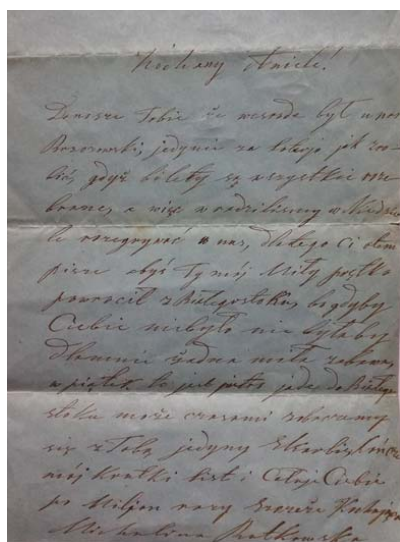 Kochany
Donoszę Tobie że wczoraj był u nas
jedynie za jak zro-
bić, gdyż bilety są wszystkie roze-
brane, a więc uradziliśmy w Niedzie-
le rozegrywać u nas, dlatego Ci otem
piszę abyś Ty mój Miły prętko
powrócił z Białegostoku, bo gdyby
Ciebie niebyło nie byłaby
dlamnie żadna miła zabawa,
w piątek to jest jutro jadę do Białego-
stoku może czasami zobaczemy
się z Tobą jedyny
mój Krotki list i Całuję Ciebie
po Miljon razy Szczerze Kochająca
Michalina Rutkowska